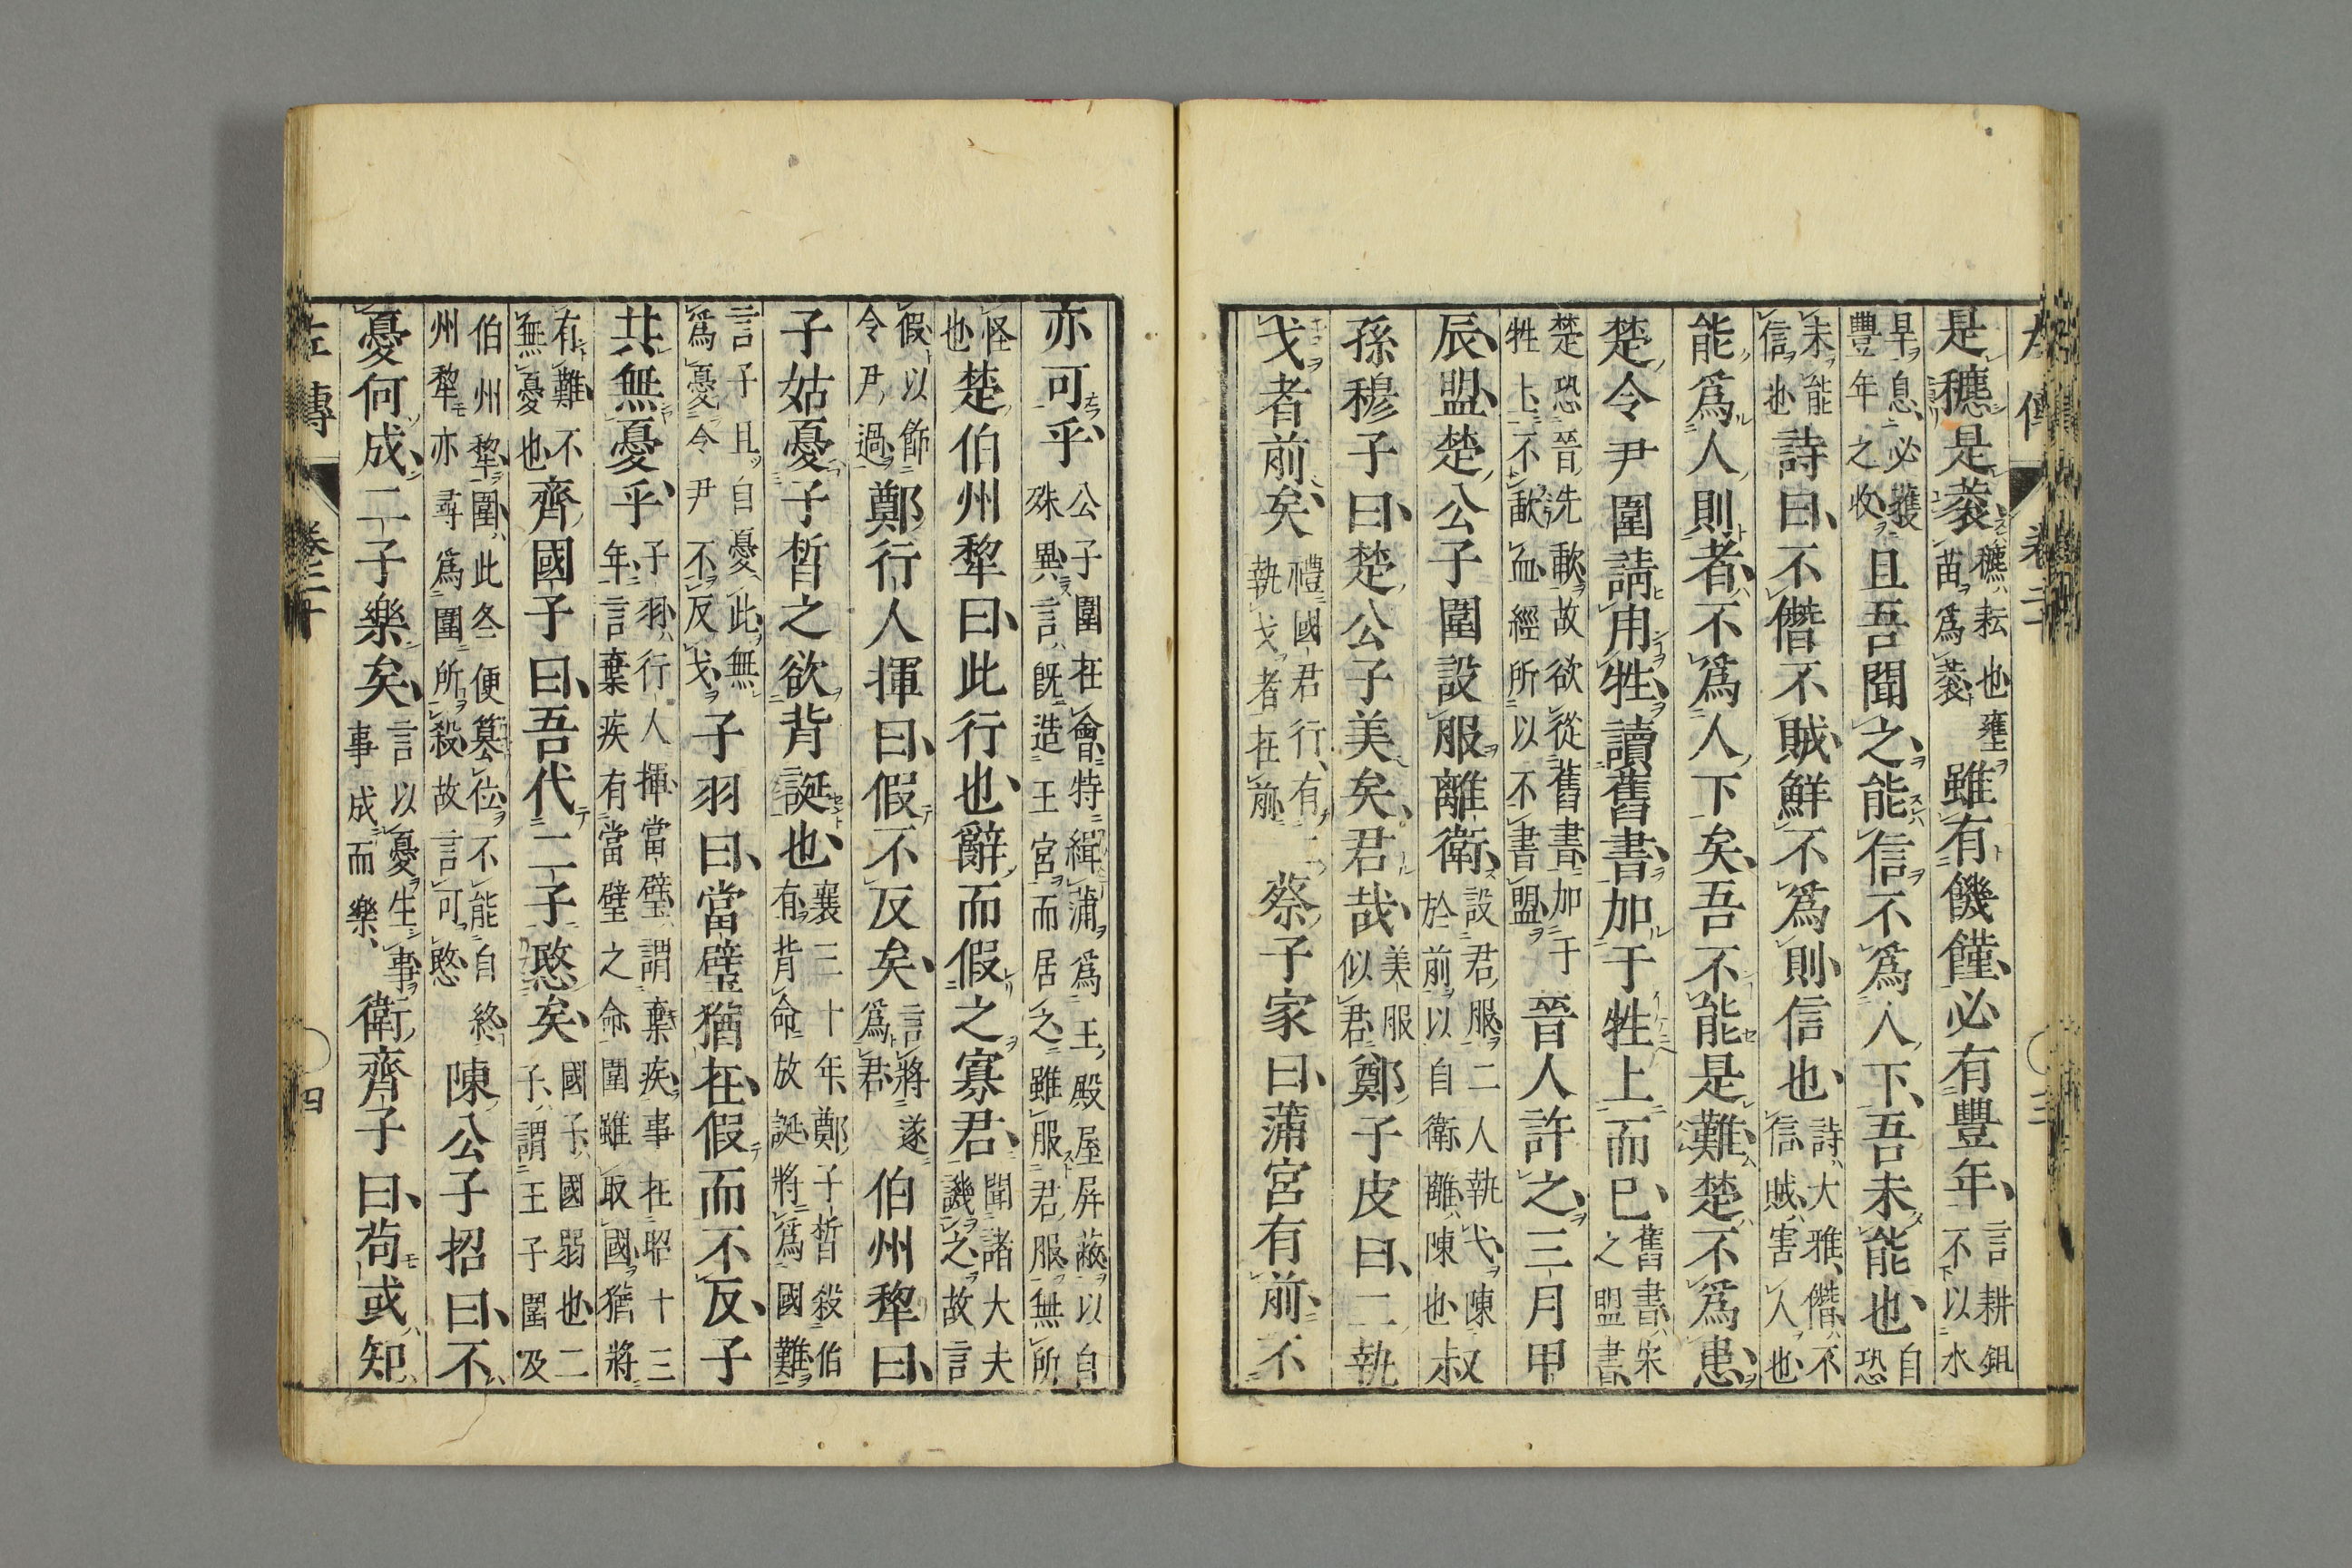 是穮是蔉穮耘也壅苗爲蔉雖有饑饉必有豐年言耕鉏不以水
旱息必獲豐年之收且吾聞之能信不爲人下吾未能也自恐
未能信也詩曰不僭不賊鮮不爲則信也詩大雅僭不信賊害人也
能爲人則者不爲人下矣吾不能是難楚不爲患
楚令尹圍請用牲讀舊書加于牲上而已舊書宋之盟書
楚恐晉先歃故欲從舊書加于牲上不歃血經所以不書盟晉人許之三月甲
辰盟楚公子圍設服離衛設君服二人執戈陳於前以自衛離陳也叔
孫穆子曰楚公子美矣君哉美服似君鄭子皮曰二執
戈者前矣禮國君行有二執戈者在前蔡子家曰蒲宮有前不
亦可乎公子圍在會特緝蒲爲王殿屋屏蔽以自殊異言旣造王宮而居之雖服君服無所
怪也楚伯州犂曰此行也辭而假之寡君聞諸大夫譏之故言
假以飾令尹過鄭行人揮曰假不反矣言將遂爲君伯州犂曰
子姑憂子晳之欲背誕也襄三十年鄭子晳殺伯有背命放誕將爲國難
言子且自憂此無爲憂令尹不反戈子羽曰當璧猶在假而不反子
其無憂乎子羽行人揮當璧謂棄疾事在昭十三年言棄疾有當璧之命圍雖取國猶將
有難不無憂也齊國子曰吾代二子愍矣國子國弱也二子謂王子圍及
伯州犂圍此冬便簒位不能自終州犂亦尋爲圍所殺故言可愍陳公子招曰不
憂何成二子樂矣言以憂生事事成而樂衛齊子曰苟或知
左傳 卷二十 四